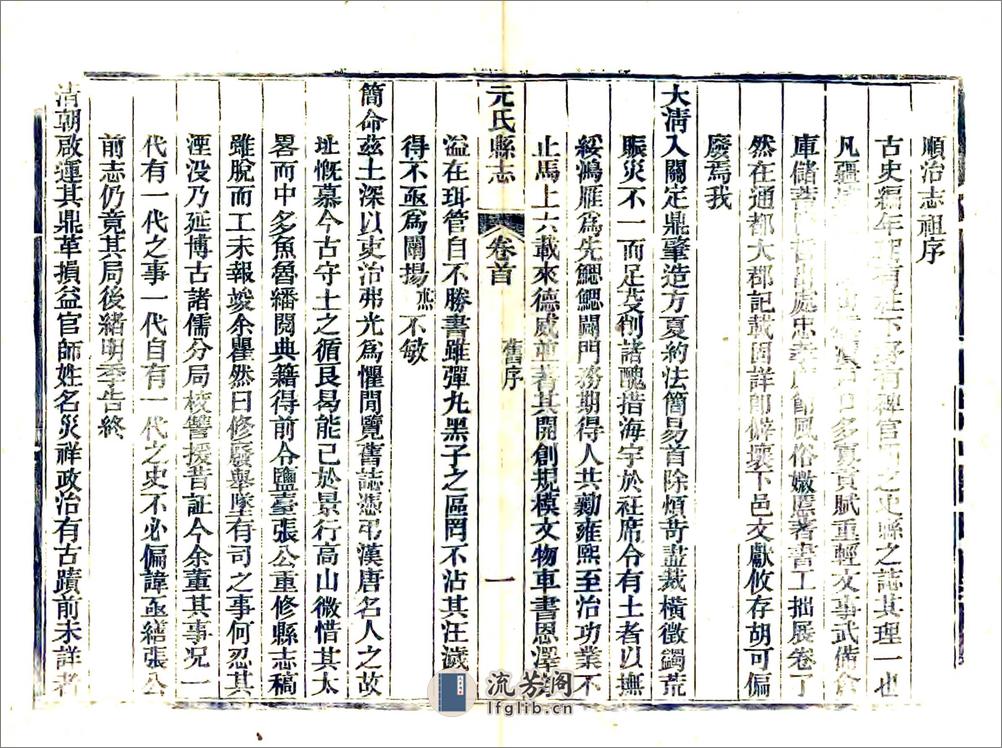 順治志祖序
古史編年
有稗官
之史縣之誌其理一也
凡疆
多寡貢賦重輕文事武備倉
庫儲蓄
出處忠孝
節風俗媺慝著書工拙展卷了
然在通都大郡記載固詳即僻壤下邑文獻攸存胡可偏
廢焉我
大清入關定鼎肇造方夏約法簡易首除煩苛盡裁橫徵蠲荒
賑災不一而足芟創諸醜措海宇於衽席令有土者以撫
綏鴻雁爲先鰓鰓闢門務期得人共勷雍熙至治功業不
止馬上六載來德威並著其開創規模文物車書恩澤
元氏縣志
卷首
舊序
一
溢在珥管自不勝書雖彈丸黑子之區罔不沾其汪濊
得不亟爲闡揚燕不敏
簡命茲土深以吏治弗光爲懼間覽舊誌憑弔漢唐名人之故
址慨慕今古守土之循良曷能已於景行高山微惜其太
畧而中多魚魯繙閱典籍得前令鹽臺張公重修縣志稿
雖脫而工未報竣余瞿然曰修廢舉墜有司之事何忍其
湮没乃延博古諸儒分局校讐援昔証今余董其事況一
代有一代之事一代自有一代之史不必偏諱亟繕張公
前志仍竟其局後緒明季告終
清朝啟運其鼎革損益官師姓名災祥政治有古蹟前未詳者
流芳阁
lfglib.cn